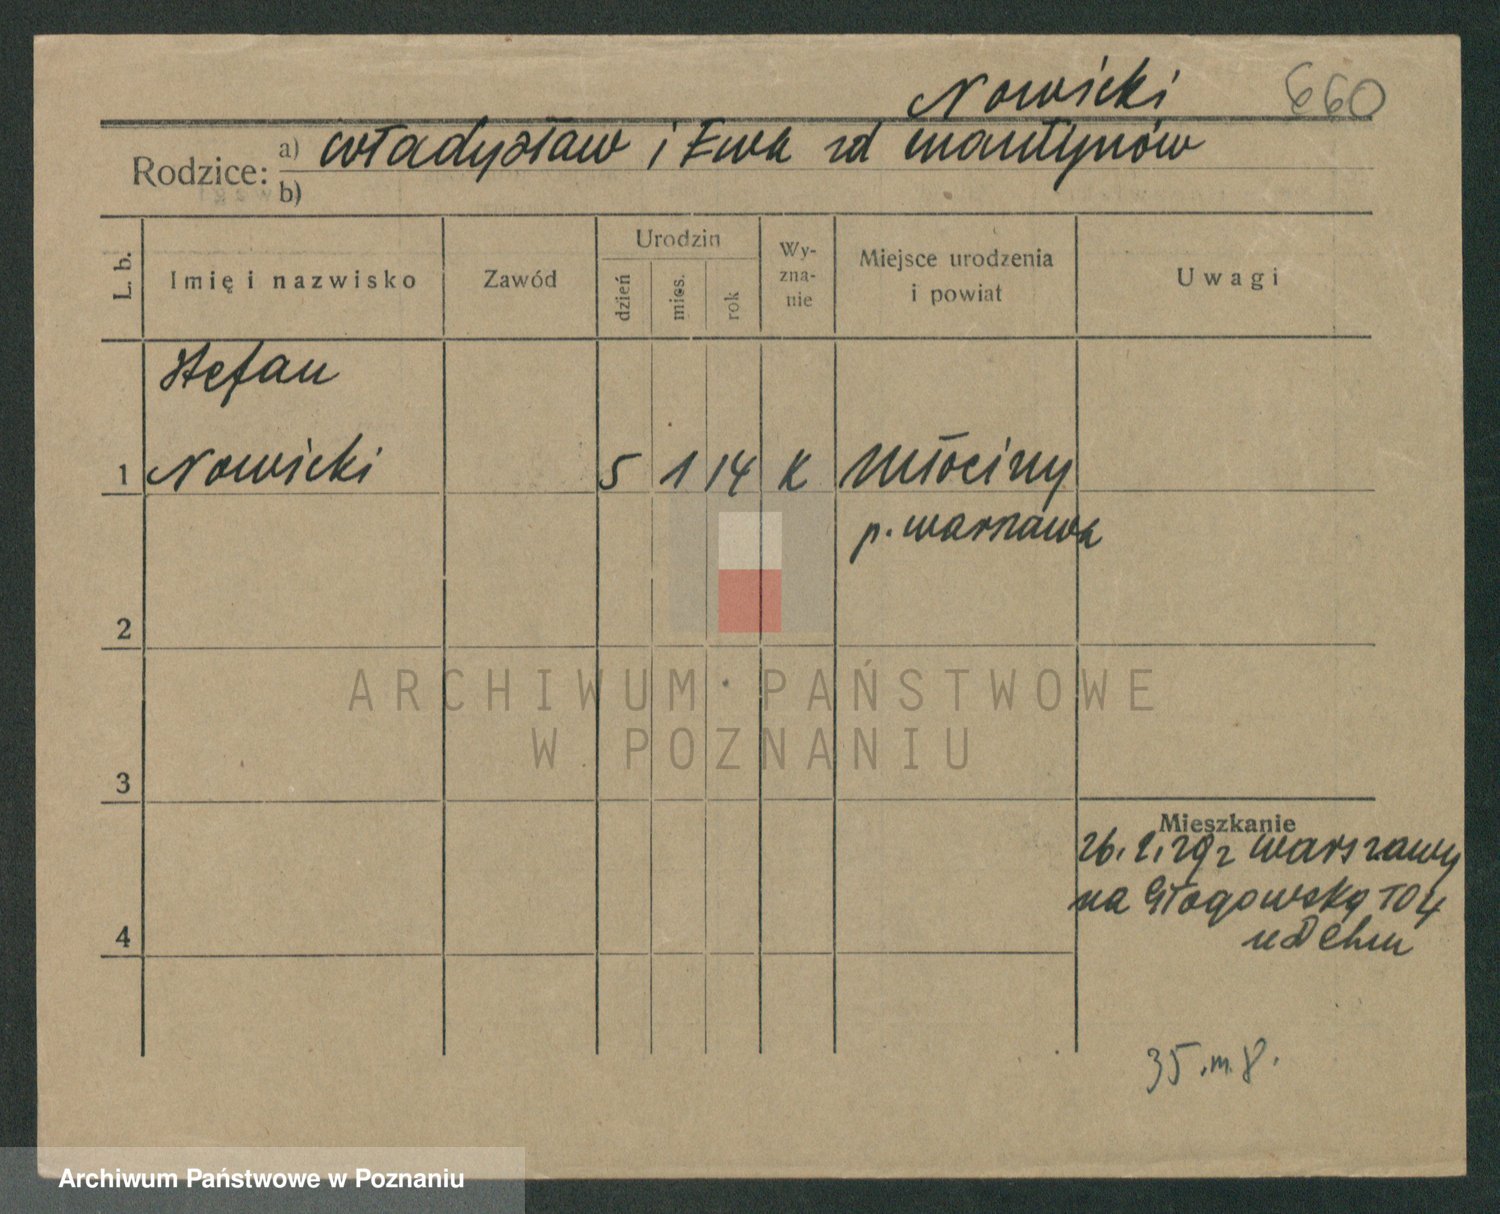 Nowicki 660
Rodzice: a) Władysław i Ewa zd Martynów
b)
L. b.
Imię i nazwisko
Zawód
Urodzin
dzień
mies.
rok
Wy-
zna-
nie
Miejsce urodzenia
i powiat
Uwagi
Stefan
1 Nowicki 5 1 14 K Młociny
p. Warszawa
2
ARCHIWUM PAŃSTWOWE
W POZNANIU
3
Mieszkanie
26. 2. 29 z Warszawy
na Głogowską 104
4
35. m. 8.
Archiwum Państwowe w Poznaniu